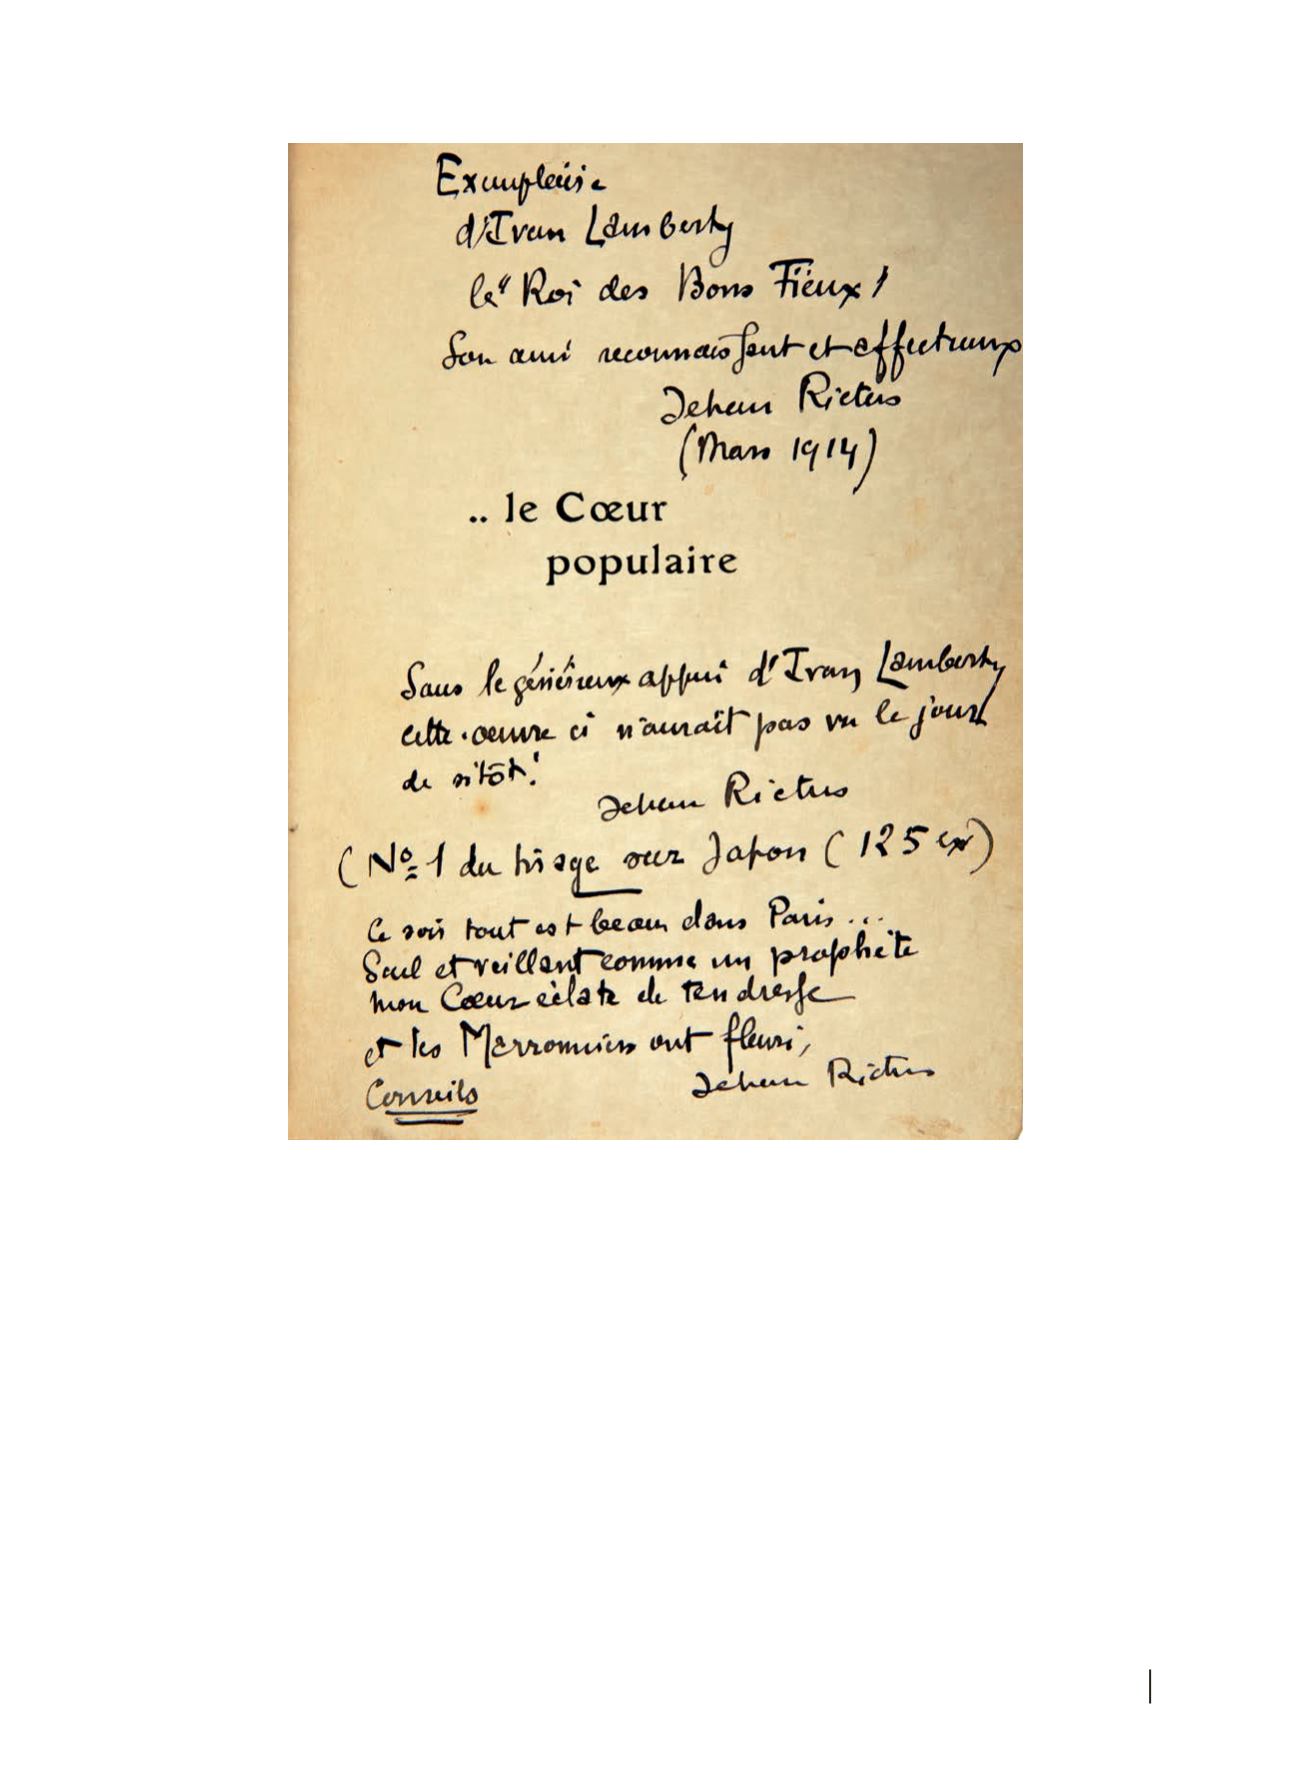 Exemplaire
d'Ivan Lamberty
le "Roi des Bons Fiéux !
Son ami reconnaissant et affectueux
Jehan Rictus
(Mars 1914)
.. le Cœur
populaire
Sans le généreux appui d'Ivan Lamberty
cette œuvre ci n'aurait pas vu le jour
de sitôt!
Jehan Rictus
(Nº 1 du tirage sur Japon (125 ex)
Ce soir tout est beau dans Paris...
Seul et veillant comme un prophète
mon Cœur éclate de tendresse
et les Marronniers ont fleuri,
Jehan Rictus
Conseils